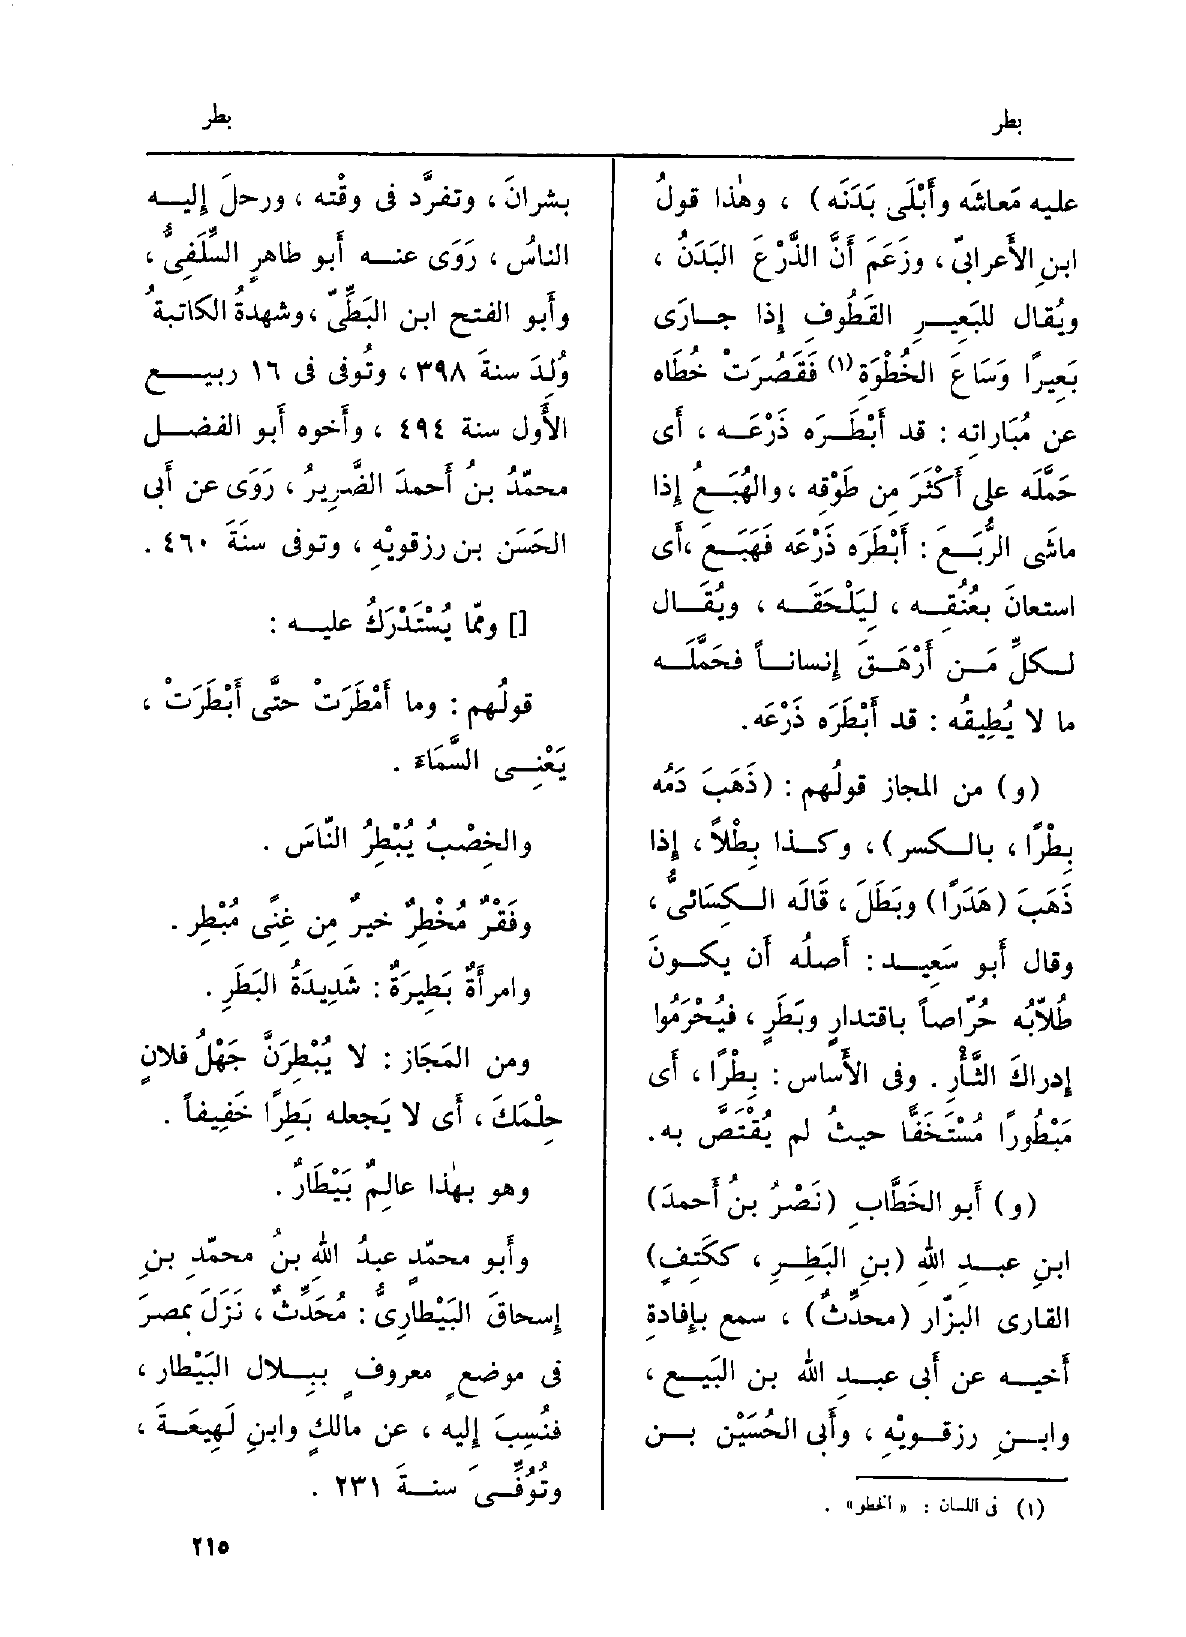 بطر
بطر
عليه مَعاشَه وأَبْلَى بَدَنَه) ، وهٰذا قولُ
ابنِ الأَعرابىّ ، وزَعَم أَنَّ الذَّرْعَ البَدَنُ ،
ويُقال للبَعِيرِ القَطُوفِ إِذا جارَى
بَعِيرًا وَسَاعَ الخُطْوَةِ (١) فَقَصُرَتْ خُطَاه
عن مُبَاراتِه : قد أَبْطَرَه ذَرْعَه ، أَى
حَمَّلَه على أَكْثَرَ مِن طَوْقِه ، والهُبَعُ إِذا
ماشَى الرُّبَعَ : أَبْطَرَه ذَرْعَه فَهَبَعَ ، أَى
استعانَ بعُنُقِه ، لِيَلْحَقَه ، ويُقَال
لكلِّ مَن أَرْهَقَ إِنساناً فحَمَّلَه
ما لا يُطِيقُه : قد أَبْطَرَه ذَرْعَه.
(و) من المجاز قولُهم : (ذَهَبَ دَمُه
بِطْرًا ، بالكسر) ، وكذا بِطْلاً ، إِذا
ذَهَبَ (هَدَرًا) وبَطَلَ ، قَالَه الكِسَائىُّ ،
وقال أَبو سَعِيد : أَصلُه أَن يكونَ
طُلاَّبُه حُرّاصاً باقتدارٍ وبَطَرٍ ، فيُحْرَمُوا
إِدراكَ الثَّأْرِ . وفى الأَساس : بِطْرًا ، أَى
مَبْطُورًا مُسْتَخَفًّا حيثُ لم يُقْتَصَّ به.
(و) أَبو الخَطَّابِ (نَصْرُ بنُ أَحمدَ)
ابنِ عبدِ اللهِ (بنِ البَطِرِ ، ككَتِفٍ)
القارى البزّار (محدِّثٌ) ، سمع بإِفادةِ
أَخيه عن أَبى عبدِ اللهِ بن البَيِّع ،
وابنِ رزقويْهِ ، وأَبى الحُسَيْن بن
(١) فى اللسان : « الخطو» .
بشرانَ ، وتفرَّد فى وقْته ، ورحلَ إِليه
الناسُ ، رَوَى عنه أَبو طاهرٍ السِّلَفِىُّ ،
وأَبو الفتح ابن البَطِّىّ ، وشهدةُ الكاتبةُ
وُلِدَ سنةَ ٣٩٨ ، وتُوفى فى ١٦ ربيع
الأَول سنة ٤٩٤ ، وأَخوه أَبو الفضل
محمّدُ بنُ أَحمدَ الضَّرِيرُ ، رَوَى عن أَبى
الحَسَن بن رزقويْهِ ، وتوفى سنَةَ ٤٦٠ .
[] وممّا يُسْتَدْرَكُ عليه :
قولُهم : وما أَمْطَرَتْ حتَّى أَبْطَرَتْ ،
يَعْنِى السَّمَاءَ .
والخِصْبُ يُبْطِرُ النّاسَ .
وفَقْرٌ مُخْطِرٌ خيرٌ مِن غِنًى مُبْطِر .
وامرأَةٌ بَطِيرَةٌ : شَدِيدَةُ البَطَرِ .
ومن المَجَاز : لا يُبْطِرَنَّ جَهْلُ فلانٍ
حِلْمَكَ ، أَى لا يَجعله بَطِرًا خَفِيفاً .
وهو بهٰذا عالِمٌ بَيْطَارٌ .
وأَبو محمّدٍ عبدُ اللهِ بنُ محمّدِ بنِ
إِسحاقَ البَيْطارِىُّ : مُحَدِّثٌ ، نَزَلَ بمصرَ
فى موضعٍ معروفٍ ببِلال البَيْطار ،
فنُسِبَ إِليه ، عن مالكٍ وابنِ لَهِيعَةَ ،
وتُوُفِّىَ سنةَ ٢٣١ .
٢١٥